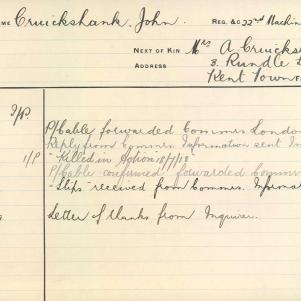 ME Cruickshank, John. REG. &c 22nd Machin
NEXT OF KIN Mrs A. Cruicks
ADDRESS 3. Rundle
Kent Town
I/P. P/Cable forwarded Commrs London
Reply from Commrs. Information sent In
I/P "Killed in Action 18/7/18"
P/Cable confirmed forwarded Commr
"Slips" received from Commrs. Informat
Letter of thanks from Inquirer.